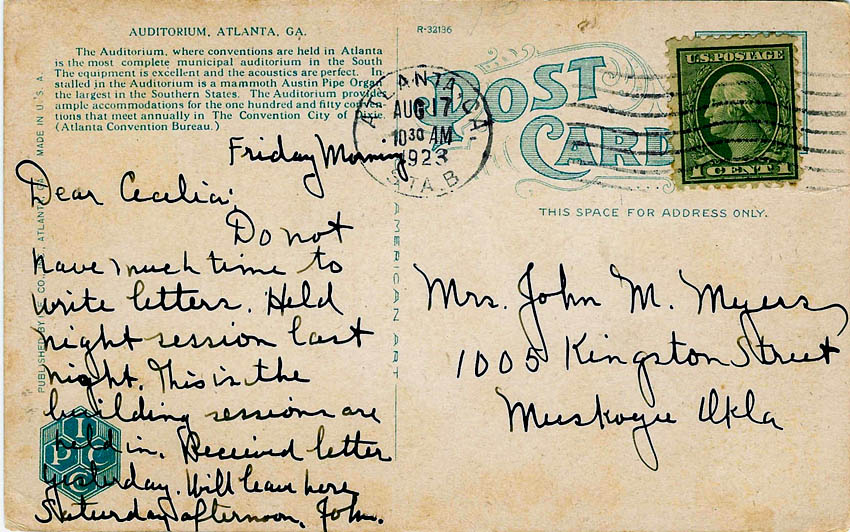 AUDITORIUM, ATLANTA, GA.
The Auditorium, where conventions are held in Atlanta
is the most complete municipal auditorium in the South
The equipment is excellent and the acoustics are perfect. In
stalled in the Auditorium is a mammoth Austin Pipe Organ
the largest in the Southern States. The Auditorium provide
ample accommodations for the one hundred and fifty conven
tions that meet annually in The Convention City of Dixie.
(Atlanta Convention Bureau.)
R-32136
POST
CARD
ATLANTA, GA.
AUG 17
10 30 AM
1923
STA. B
U.S. POSTAGE
1 CENT 1
THIS SPACE FOR ADDRESS ONLY.
MADE IN U. S. A.
PUBLISHED BY I. P. CO. ATLANTA, GA.
AMERICAN ART
Friday Morning
Dear Cecelia:
Do not
have much time to
write letters. Held
night session last
night. This is the
building sessions are
held in. Received letter
yesterday. Will leave here
Saturday afternoon. John.
IPCC
Mrs. John M. Myers
1005 Kingston Street
Muskogee Okla